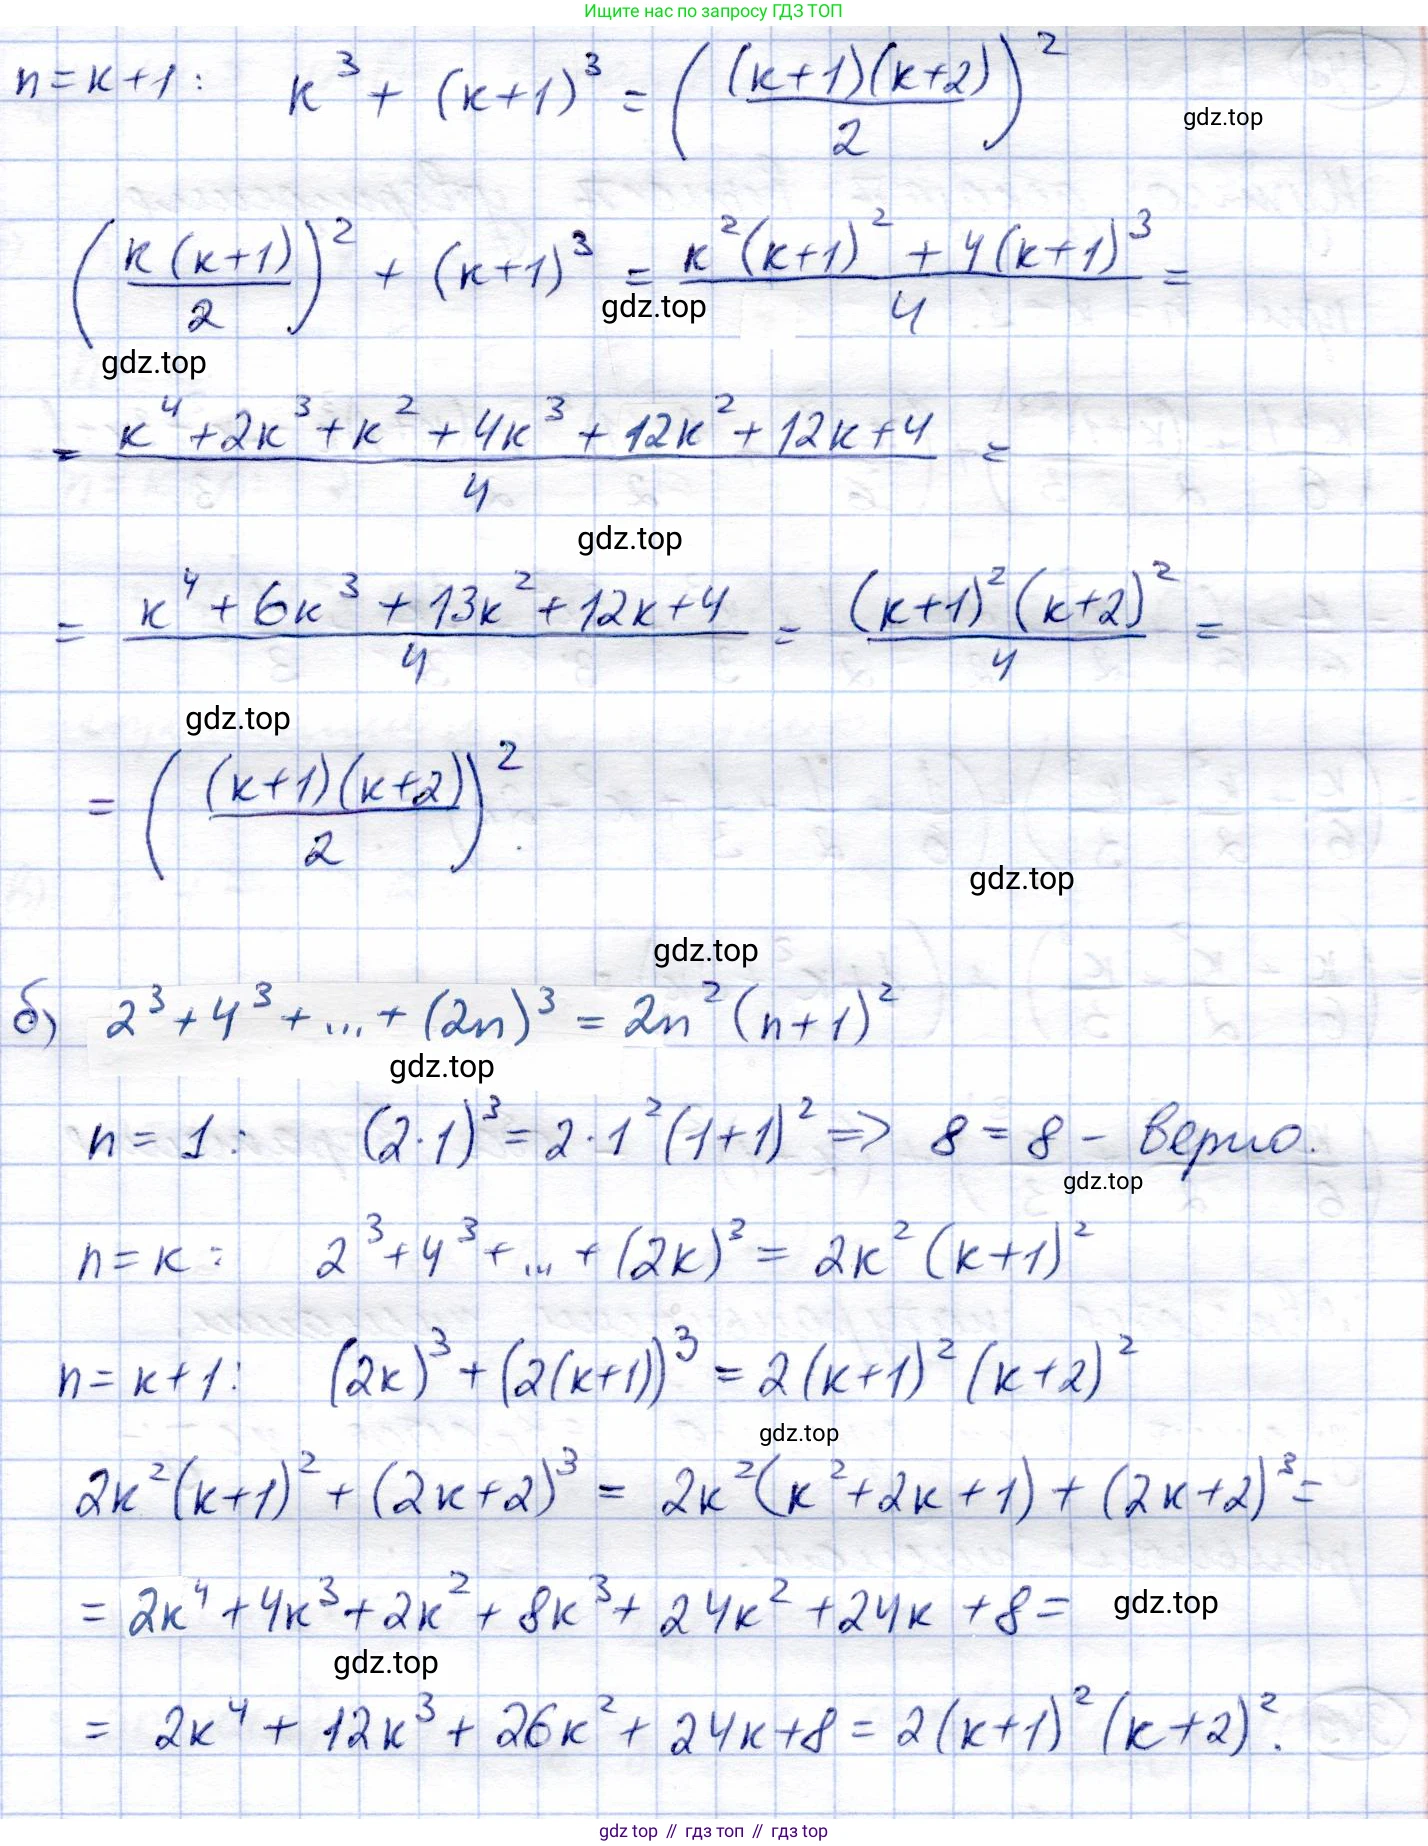 Ищите нас по запросу ГДЗ ТОП
n = к + 1 : к³ + (к+1)³ = ((к+1)(к+2)/2)²
gdz.top
(к(к+1)/2)² + (к+1)³ = (к²(к+1)² + 4(к+1)³)/4 =
gdz.top
gdz.top
= (к⁴ + 2к³ + к² + 4к³ + 12к² + 12к + 4)/4 =
gdz.top
= (к⁴ + 6к³ + 13к² + 12к + 4)/4 = (к+1)²(к+2)²/4 =
gdz.top
= ((к+1)(к+2)/2)².
gdz.top
gdz.top
б) 2³ + 4³ + ... + (2n)³ = 2n²(n+1)²
gdz.top
n = 1 : (2·1)³ = 2·1²(1+1)² => 8 = 8 - верно.
gdz.top
n = к : 2³ + 4³ + ... + (2к)³ = 2к²(к+1)²
n = к + 1 : (2к)³ + (2(к+1))³ = 2(к+1)²(к+2)²
gdz.top
2к²(к+1)² + (2к+2)³ = 2к²(к² + 2к + 1) + (2к+2)³ =
= 2к⁴ + 4к³ + 2к² + 8к³ + 24к² + 24к + 8 =
gdz.top
gdz.top
= 2к⁴ + 12к³ + 26к² + 24к + 8 = 2(к+1)²(к+2)².
gdz top // гдз топ // гдз top